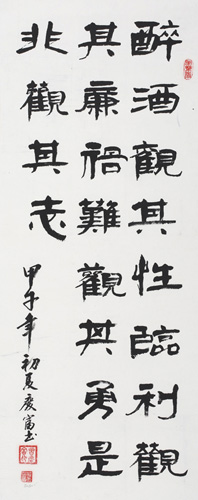 醉酒觀其性臨利觀
其廉禍難觀其勇是
非觀其志
甲午年初夏慶富书